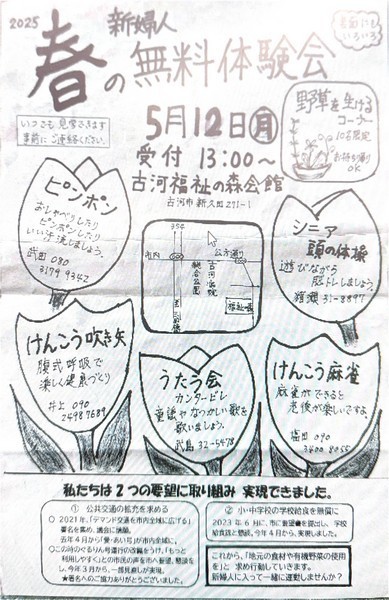 2025
新婦人
春の無料体験会
最前にも
いろいろ
いつでも見学できます
事前にご連絡ください。
5月12日(月)
受付 13:00〜
古河福祉の森会館
古河市新久田271-1
野草を生ける
コーナー
10名限定
お持ち帰り
OK
ピンポン
おしゃべりしたり
ピンポンしたり
いい汗流しましょう。
武田 080
3179 9342
354
市内
公方通り
総合公園
古河病院
福祉の森
シニア
頭の体操
遊びながら
脳トレしましょう。
猪瀬 31-8897
けんこう吹き矢
腹式呼吸で
楽しく健康づくり
井上 090
2498 7689
うたう会
カンタービレ
童謡やなつかしい歌を
歌いましょう。
武島 32-5478
けんこう麻雀
麻雀ができると
老後が楽しいですよ。
福田 090
3600 8055
私たちは2つの要望に取り組み 実現できました。
① 公共交通の拡充を求める
○ 2021年、「デマンド交通を市内全域に広げる」
署名を集め、議会に請願。
去年4月から「愛・あい号」が市内全域に。
○この時のぐるりん号運行の改悪をうけ、「もっと
利用しやすく」との市民の声を市へ要望、懇談を
し、今年3月から、一部見直しが実現。
★署名へのご協力ありがとうございました。
② 小・中学校の学校給食を無償に
2023年6月に、市に要望書を提出し、学校
給食課と懇談。今年4月から、実現します。
これから、「地元の食材や有機野菜の使用
を」と 求め行動していきます。
新婦人に入って一緒に運動しませんか?